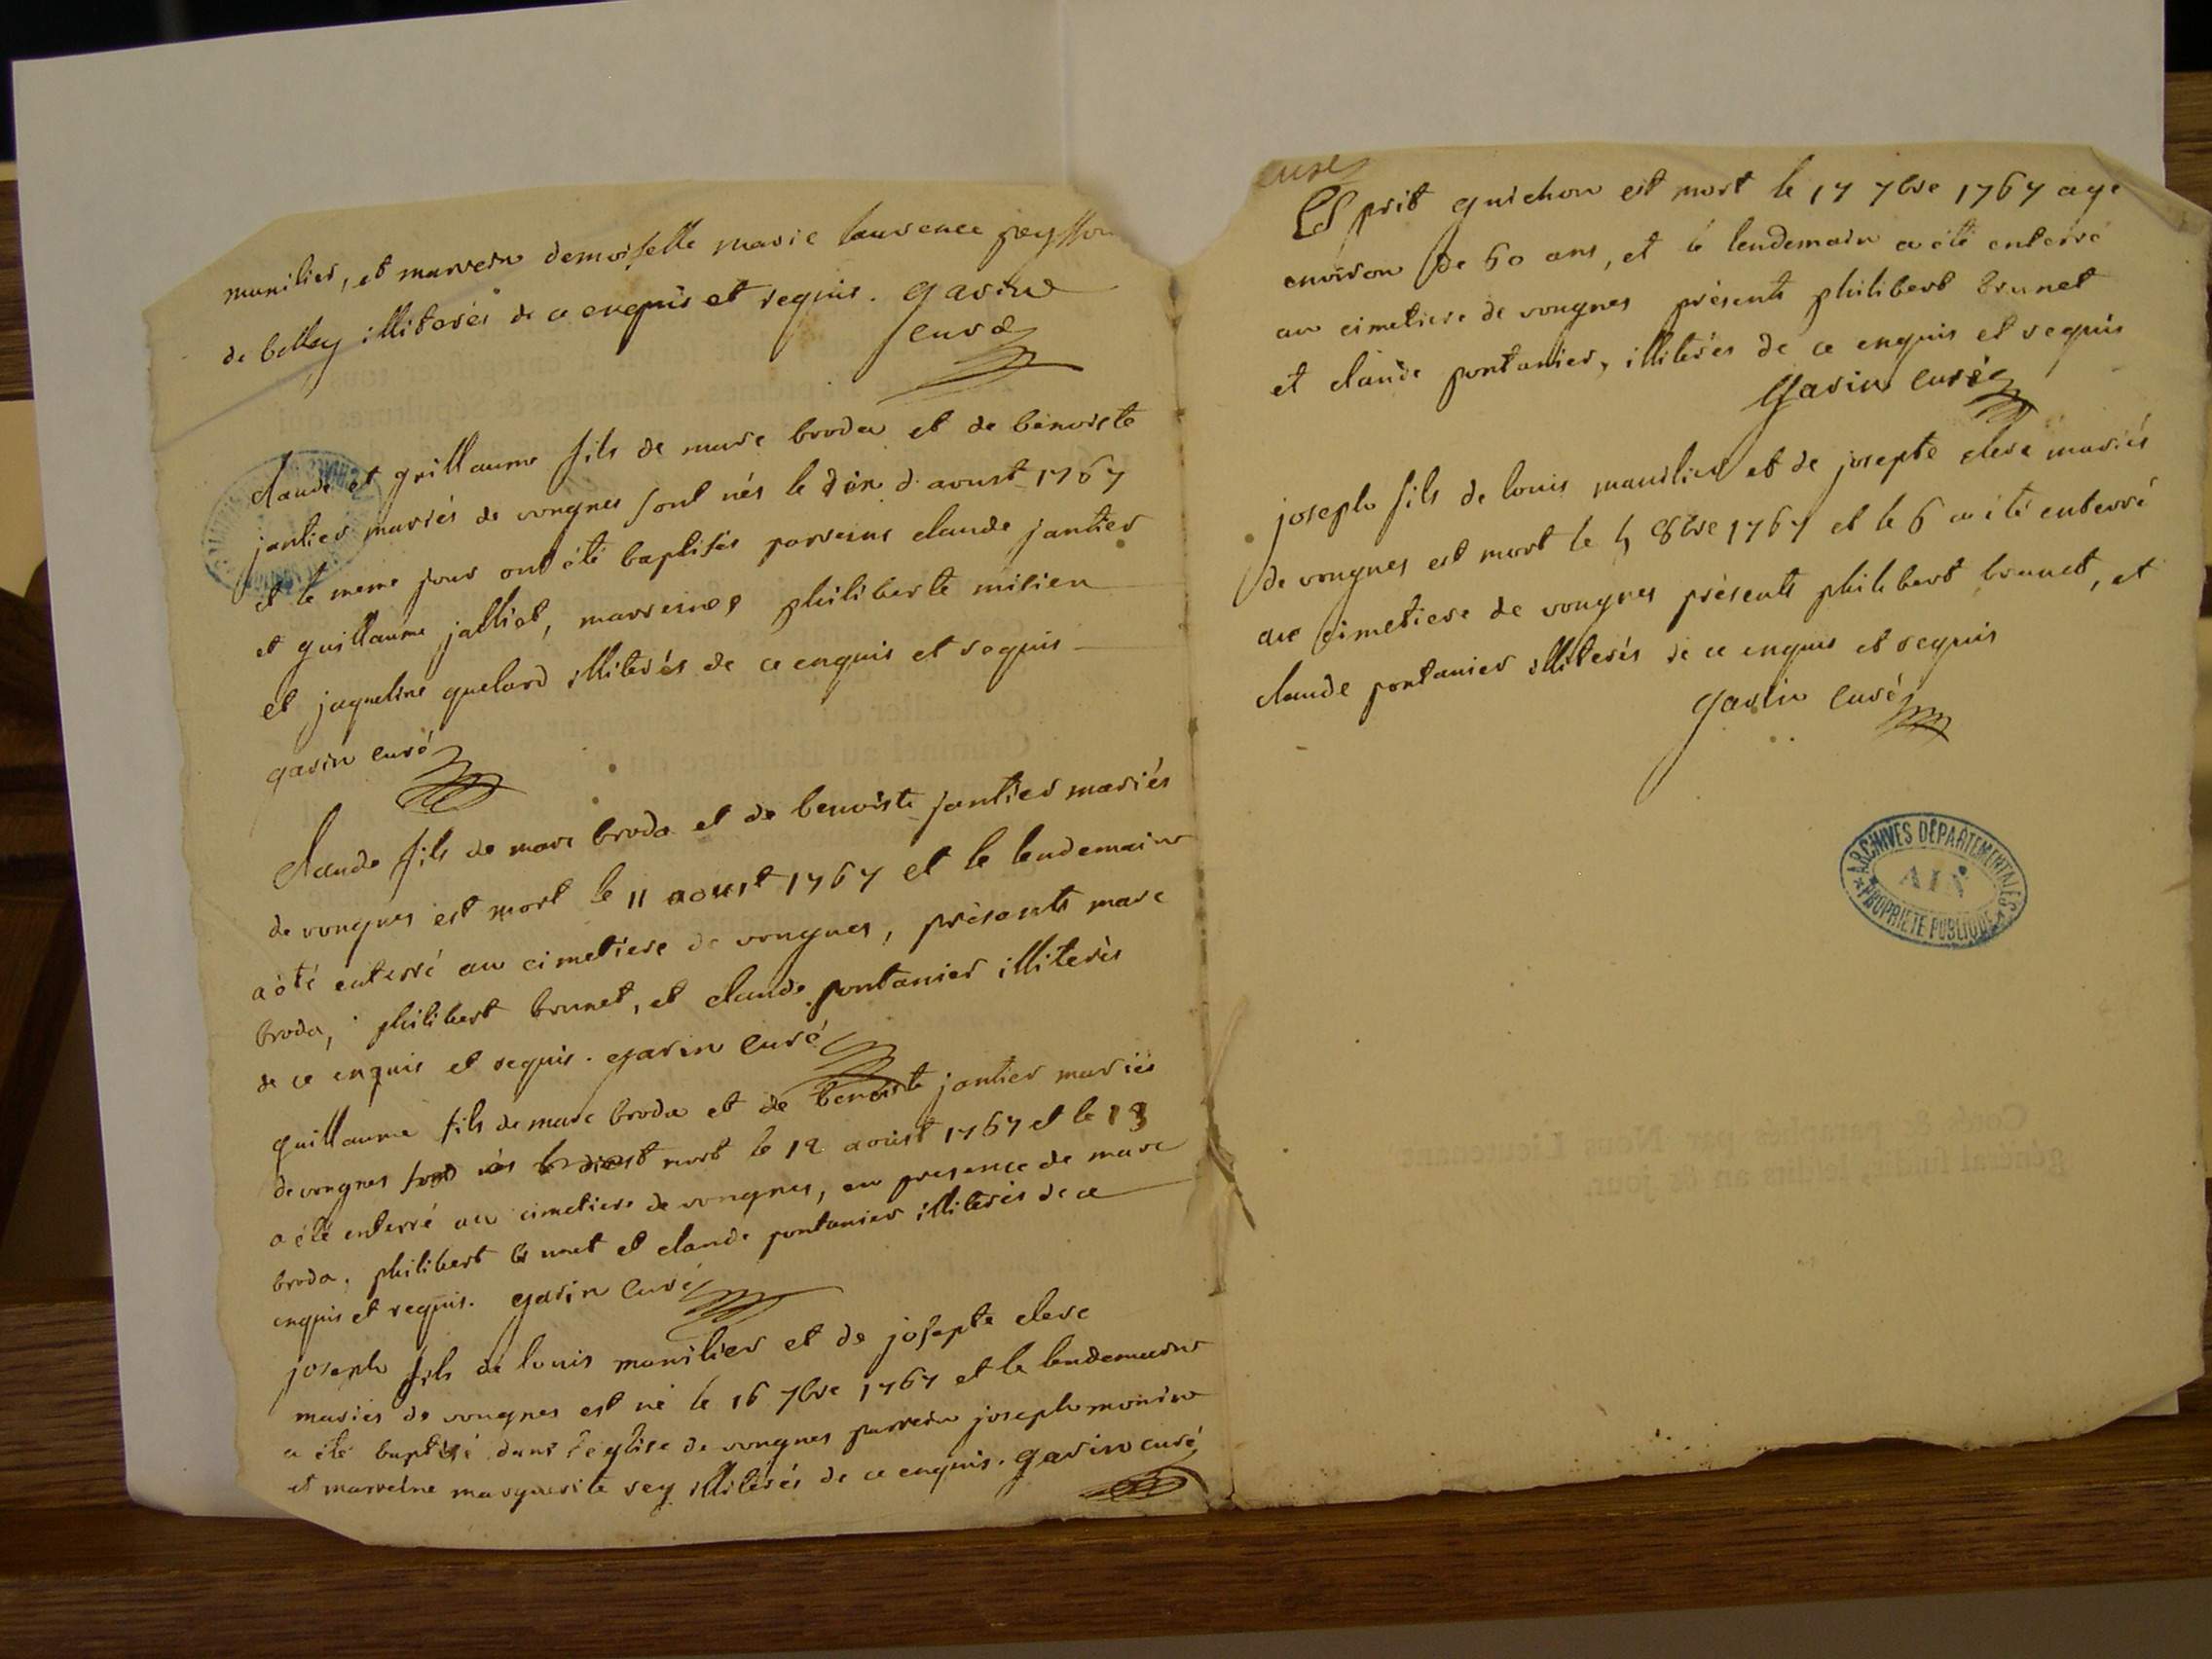 manilier, et marrein demoiselle marie laurence peysson
de belley illiterés de ce enquis et requis. garin
curé
claude et guillaume fils de marc broda et de benoiste
jantier mariés de vongnes sont nés le dix d'aoust 1767
et le meme jour ont été baptisés parreins claude jantier
et guillaume jalliet, marreines philiberte milien
et jaqueline guelard illiterés de ce enquis et requis
garin curé
claude fils de marc broda et de benoiste jantier mariés
de vongnes est mort le 11 aoust 1767 et le lendemain
a été enterré au cimetiere de vongnes, présents marc
broda, philibert brunet, et claude pontanier illiterés
de ce enquis et requis. garin curé
guillaume fils de marc broda et de benoiste jantier mariés
de vongnes est mort le 12 aoust 1767 et le 13
a été enterré au cimetiere de vongnes, en presence de marc
broda, philibert brunet et claude pontanier illiterés de ce
enquis et requis. garin curé
joseph fils de louis manilier et de josepte clerc
mariés de vongnes est né le 16 7bre 1767 et le lendemain
a été baptisé dans l'eglise de vongnes parrein joseph monin
et marreine marguerite rey illiterés de ce enquis. garin curé
curé
Esprit guichon est mort le 17 7bre 1767 age
environ de 60 ans, et le lendemain a été enterré
au cimetiere de vongnes présents philibert brunet
et claude pontanier, illiterés de ce enquis et requis
garin curé
joseph fils de louis manilier et de josepte clerc mariés
de vongnes est mort le 5 8bre 1767 et le 6 a été enterré
au cimetiere de vongnes présents philibert brunet, et
claude pontanier illiterés de ce enquis et requis
garin curé
ARCHIVES DÉPARTEMENTALES
AIN
PROPRIÉTÉ PUBLIQUE